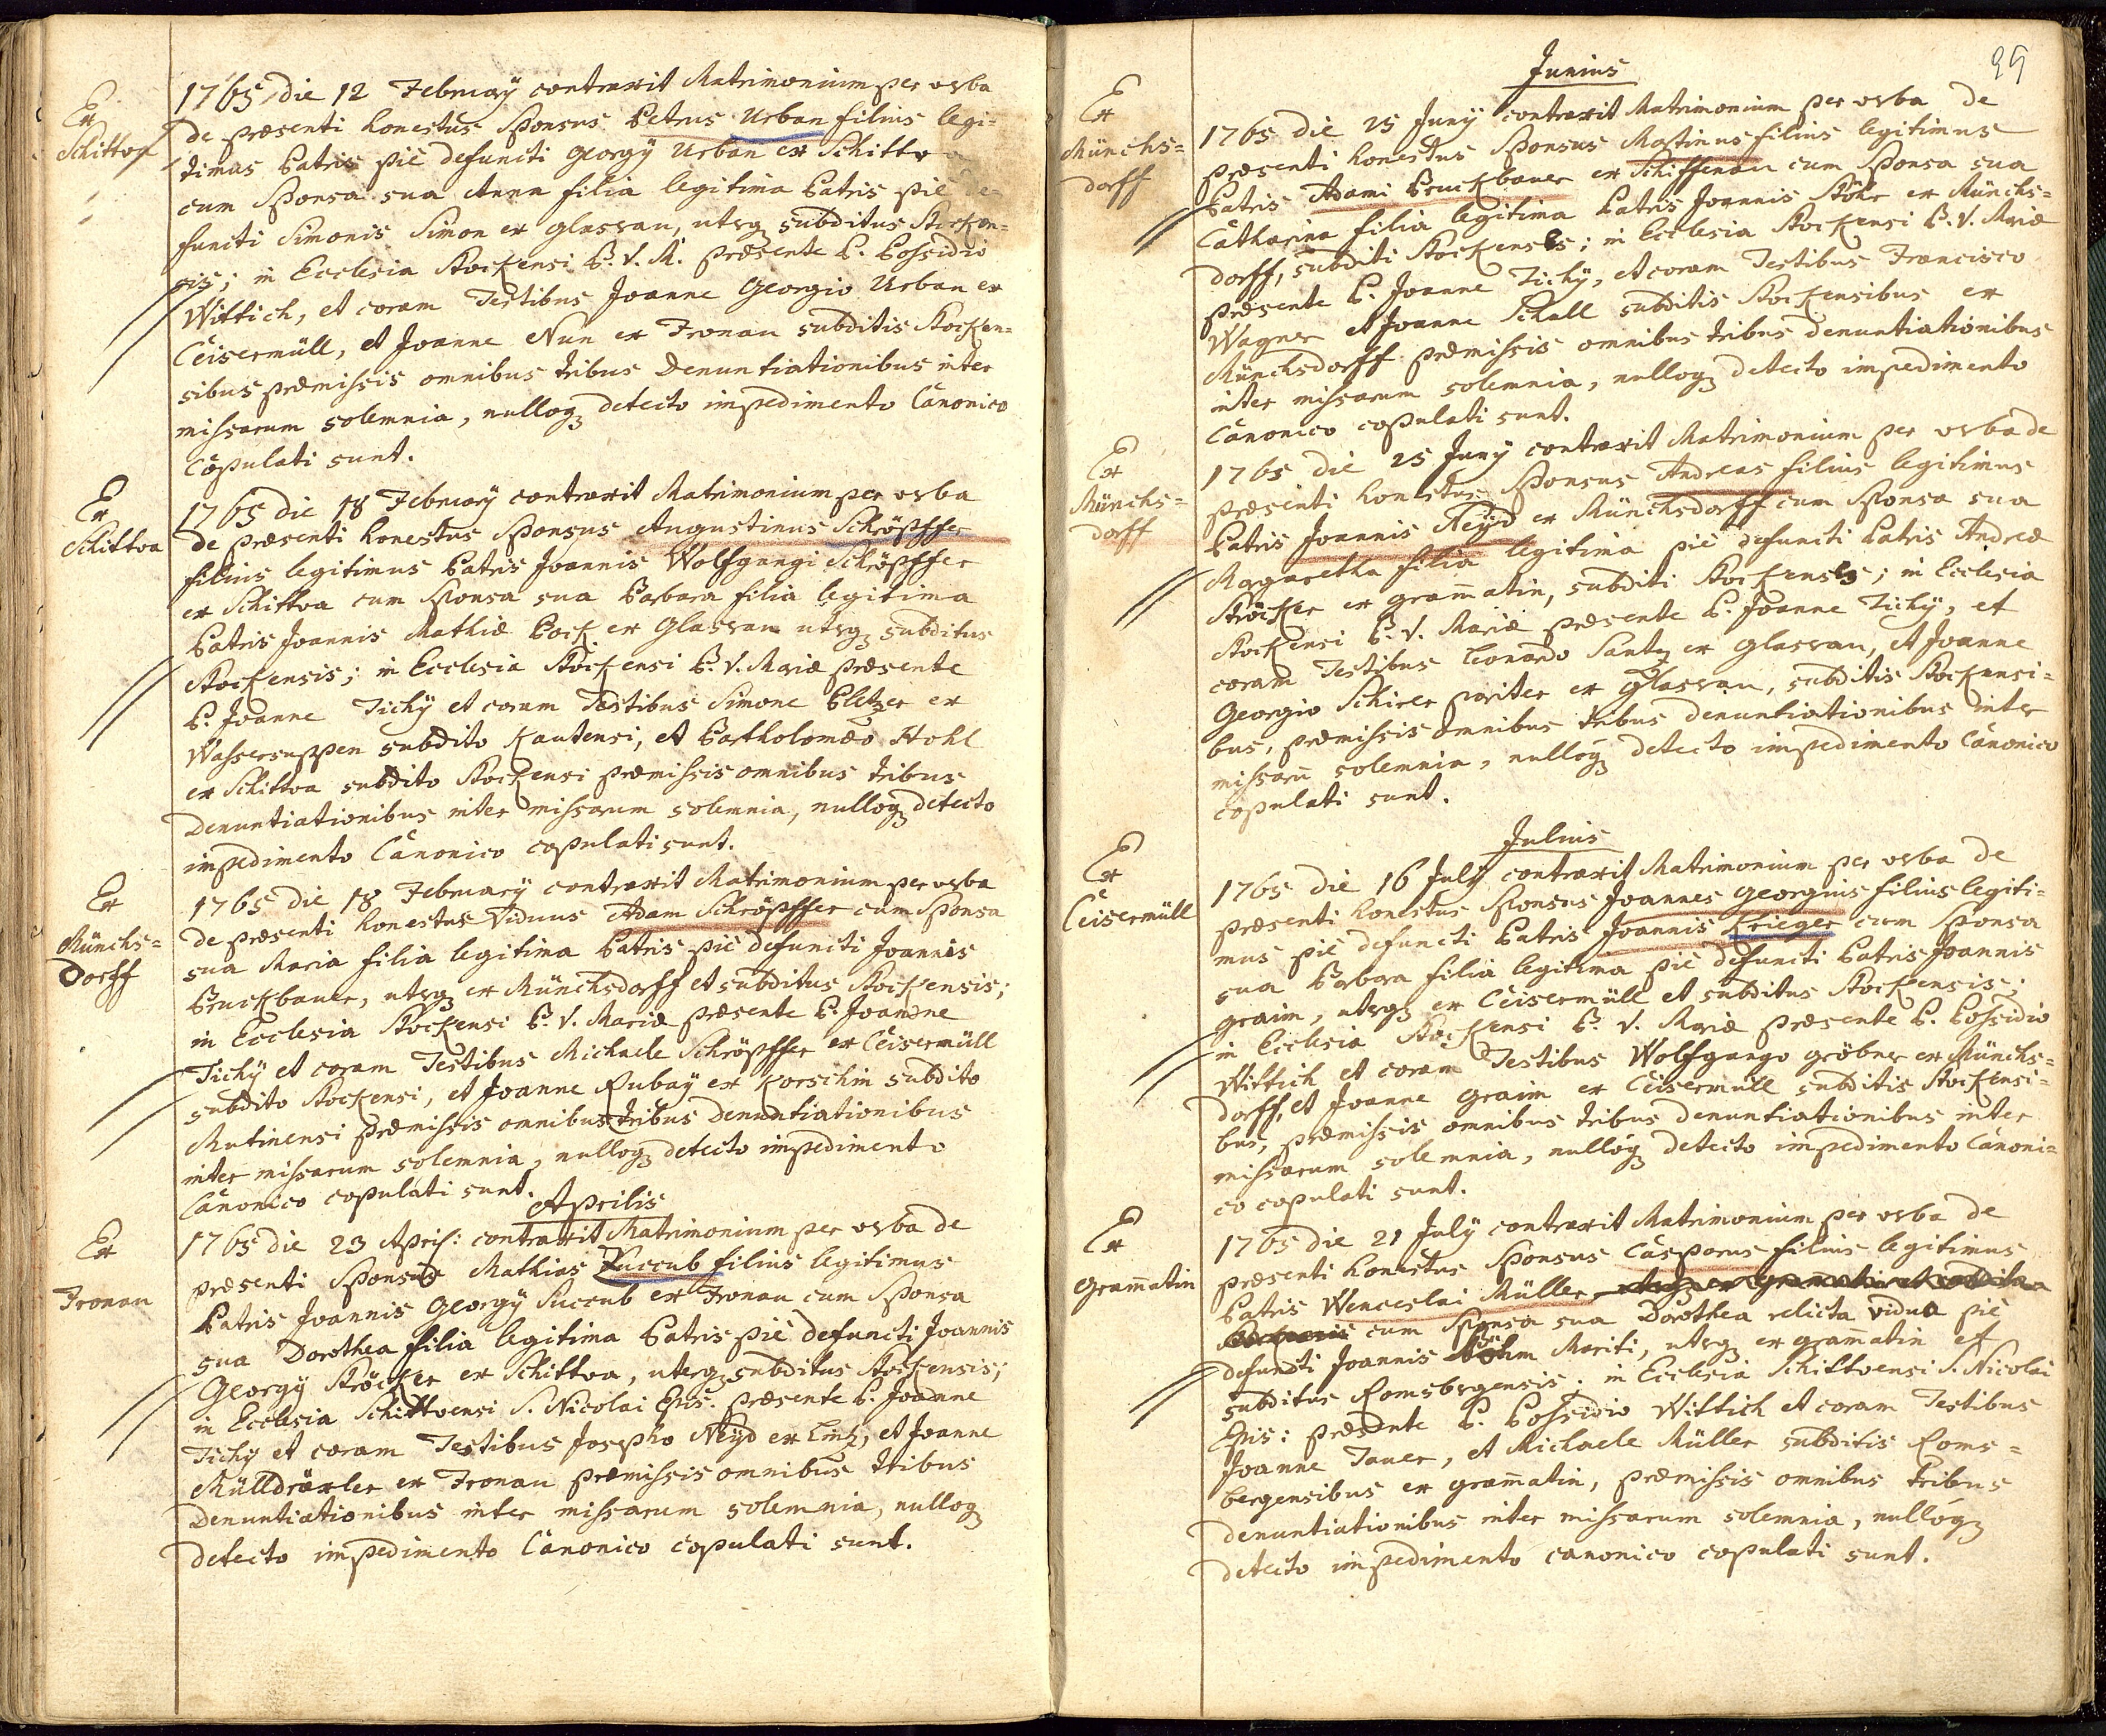 Ex
Schittva
1765 die 12 Februarÿ contraxit Matrimonium per verba
de præsenti honestus Sponsus Petrus Urban filius legi=
timus Patris piè defuncti Georgÿ Urban ex Schittva
cum Sponsa sua Anna filia legitima Patris piè de=
functi Simonis Simon ex Glassau, uterq subditus Stocken=
sis; in Ecclesia Stockensi B. V. M. præsente P. Possidio
Wittich, et coram Testibus Joanne Georgio Urban ex
Ceisermüll, et Joanne Nun ex Fronau subditis Stocken=
sibus præmissis omnibus tribus Denuntiationibus inter
missarum solemnia, nulloq detecto impedimento Canonico
Copulati sunt.
Ex
Schittva
1765 die 18 Februarÿ contraxit Matrimonium per verba
de præsenti honestus Sponsus Augustinus Schöpffer
filius legitimus Patris Joannis Wolfgangi Schröpffer
ex Schittva cum Sponsa sua Barbara filia legitima
Patris Joannis Mathiæ Bock ex Glassau uterq subditus
Stockensis; in Ecclesia Stockensi B. V. Mariæ præsente
P. Joanne Tichÿ et coram Testibus Simone Pletzer ex
Wassersuppen subdito Kautensi, et Bartholomæo Hohl
ex Schittva subdito Stockensi præmissis omnibus tribus
Denuntiationibus inter missarum solemnia, nulloq detecto
impedimento Canonico copulati sunt.
Ex
Münchs=
Dorff
1765 die 18 Februarÿ contraxit Matrimonium per verba
de præsenti honestus Viduus Adam Schröpffer cum Sponsa
sua Maria filia legitima Patris piè defuncti Joannis
Bruckbauer, uterq ex Münchsdorff et subditus Stockensis;
in Ecclesia Stockensi B. V. Mariæ præsente P. Joanne
Tichÿ et coram Testibus Michaele Schröpffer ex Ceisermüll
subdito Stockensi, et Joanne Rubaÿ ex Korschin subdito
Mutinensi præmissis omnibus tribus denuntiationibus
inter missarum solemnia, nulloq detecto impedimento
Canonico copulati sunt.
Aprilis
Ex
Fronau
1765 die 23 April: contraxit Matrimonium per verba de
præsenti Sponsus Mathias Succub filius legitimus
Patris Joannis Georgÿ Succub ex Fronau cum Sponsa
sua Dorothea filia legitima Patris piè defuncti Joannis
Georgÿ Ströcker ex Schittva, uterq subditus Stockensis;
in Ecclesia Schittvensi S. Nicolai Epis: præsente P. Joanne
Tichÿ et coram Testibus Josepho Neÿd ex Linz, et Joanne
Mülldräxler ex Fronau præmissis omnibus tribus
Denuntiationibus inter missarum solemnia, nulloq
detecto impedimento Canonico copulati sunt.
Junius
Ex
Münchs=
dorff
1765 die 25 Junÿ contraxit Matrimonium per verba de
præsenti honestus Sponsus Martinus filius legitimus
Patris Adami Bruckbauer ex Schiffenau cum Sponsa sua
Catharina filia legitima Patris Joannis Stöhr ex Münchs=
dorff, subditi Stockenses; in Ecclesia Stockensi B. V. Mariæ
præsente P. Joanne Tichÿ, et coram Testibus Francisco
Wagner et Joanne Schall subditis Stockensibus ex
Münchsdorff præmissis omnibus tribus denuntiationibus
inter missarum solemnia, nulloq detecto impedimento
Canonico copulati sunt.
Ex
Münchs=
dorff
1765 die 25 Junÿ contraxit Matrimonium per verba de
præsenti honestus Sponsus Andreas filius legitimus
Patris Joannis Neÿd ex Münchsdorff cum Sponsa sua
Margaretha filia legitima piè defuncti Patris Andreæ
Ströcker ex gram̄atin, subditi Stockenses; in Ecclesia
Stockensi B. V. Mariæ præsente P. Joanne Tichÿ, et
coram Testibus Leonardo Santz ex Glassau, et Joanne
Georgio Schirer pariter ex Glassau, subditis Stockensi=
bus, præmissis omnibus tribus denuntiationibus inter
missarū solemnia, nulloq detecto impedimento Canonico
copulati sunt.
Julius
Ex
Ceisermüll
1765 die 16 Julÿ contraxit Matrimonium per verba de
præsenti honestus Sponsus Joannes Georgius filius legiti=
mus piè defuncti Patris Joannis Krieger cum Sponsa
sua Barbara filia legitima piè defuncti Patris Joannis
graim, uterq ex Ceisermüll et subditus Stockensis;
in Ecclesia Stockensi B. V. Mariæ præsente P. Possidio
Wittich et coram Testibus Wolfgango gröbner ex Münchs=
dorff, et Joanne graim ex Ceisermüll subditis Stockensi=
bus, præmissis omnibus tribus denuntiationibus inter
missarum solemnia, nulloq detecto impedimento Canoni=
co copulati sunt.
Ex
Gram̄atin
1765 die 21 Julÿ contraxit Matrimonium per verba de
præsenti honestus Sponsus Casparus filius legitimus
Patris Wenceslai Müller
cum Sponsa sua Dorothea relicta vidua piè
defuncti Joannis Böhm Mariti, uterq ex gramatin et
subditus Romsbergensis; in Ecclesia Schittvensi S. Nicolai
Epis: præsente P. Possidio Wittich et coram Testibus
Joanne Tauer, et Michaele Müller subditis Roms=
bergensibus ex gram̄atin, præmissis omnibus tribus
denuntiationibus inter missarum solemnia, nulloq
detecto impedimento canonico copulati sunt.